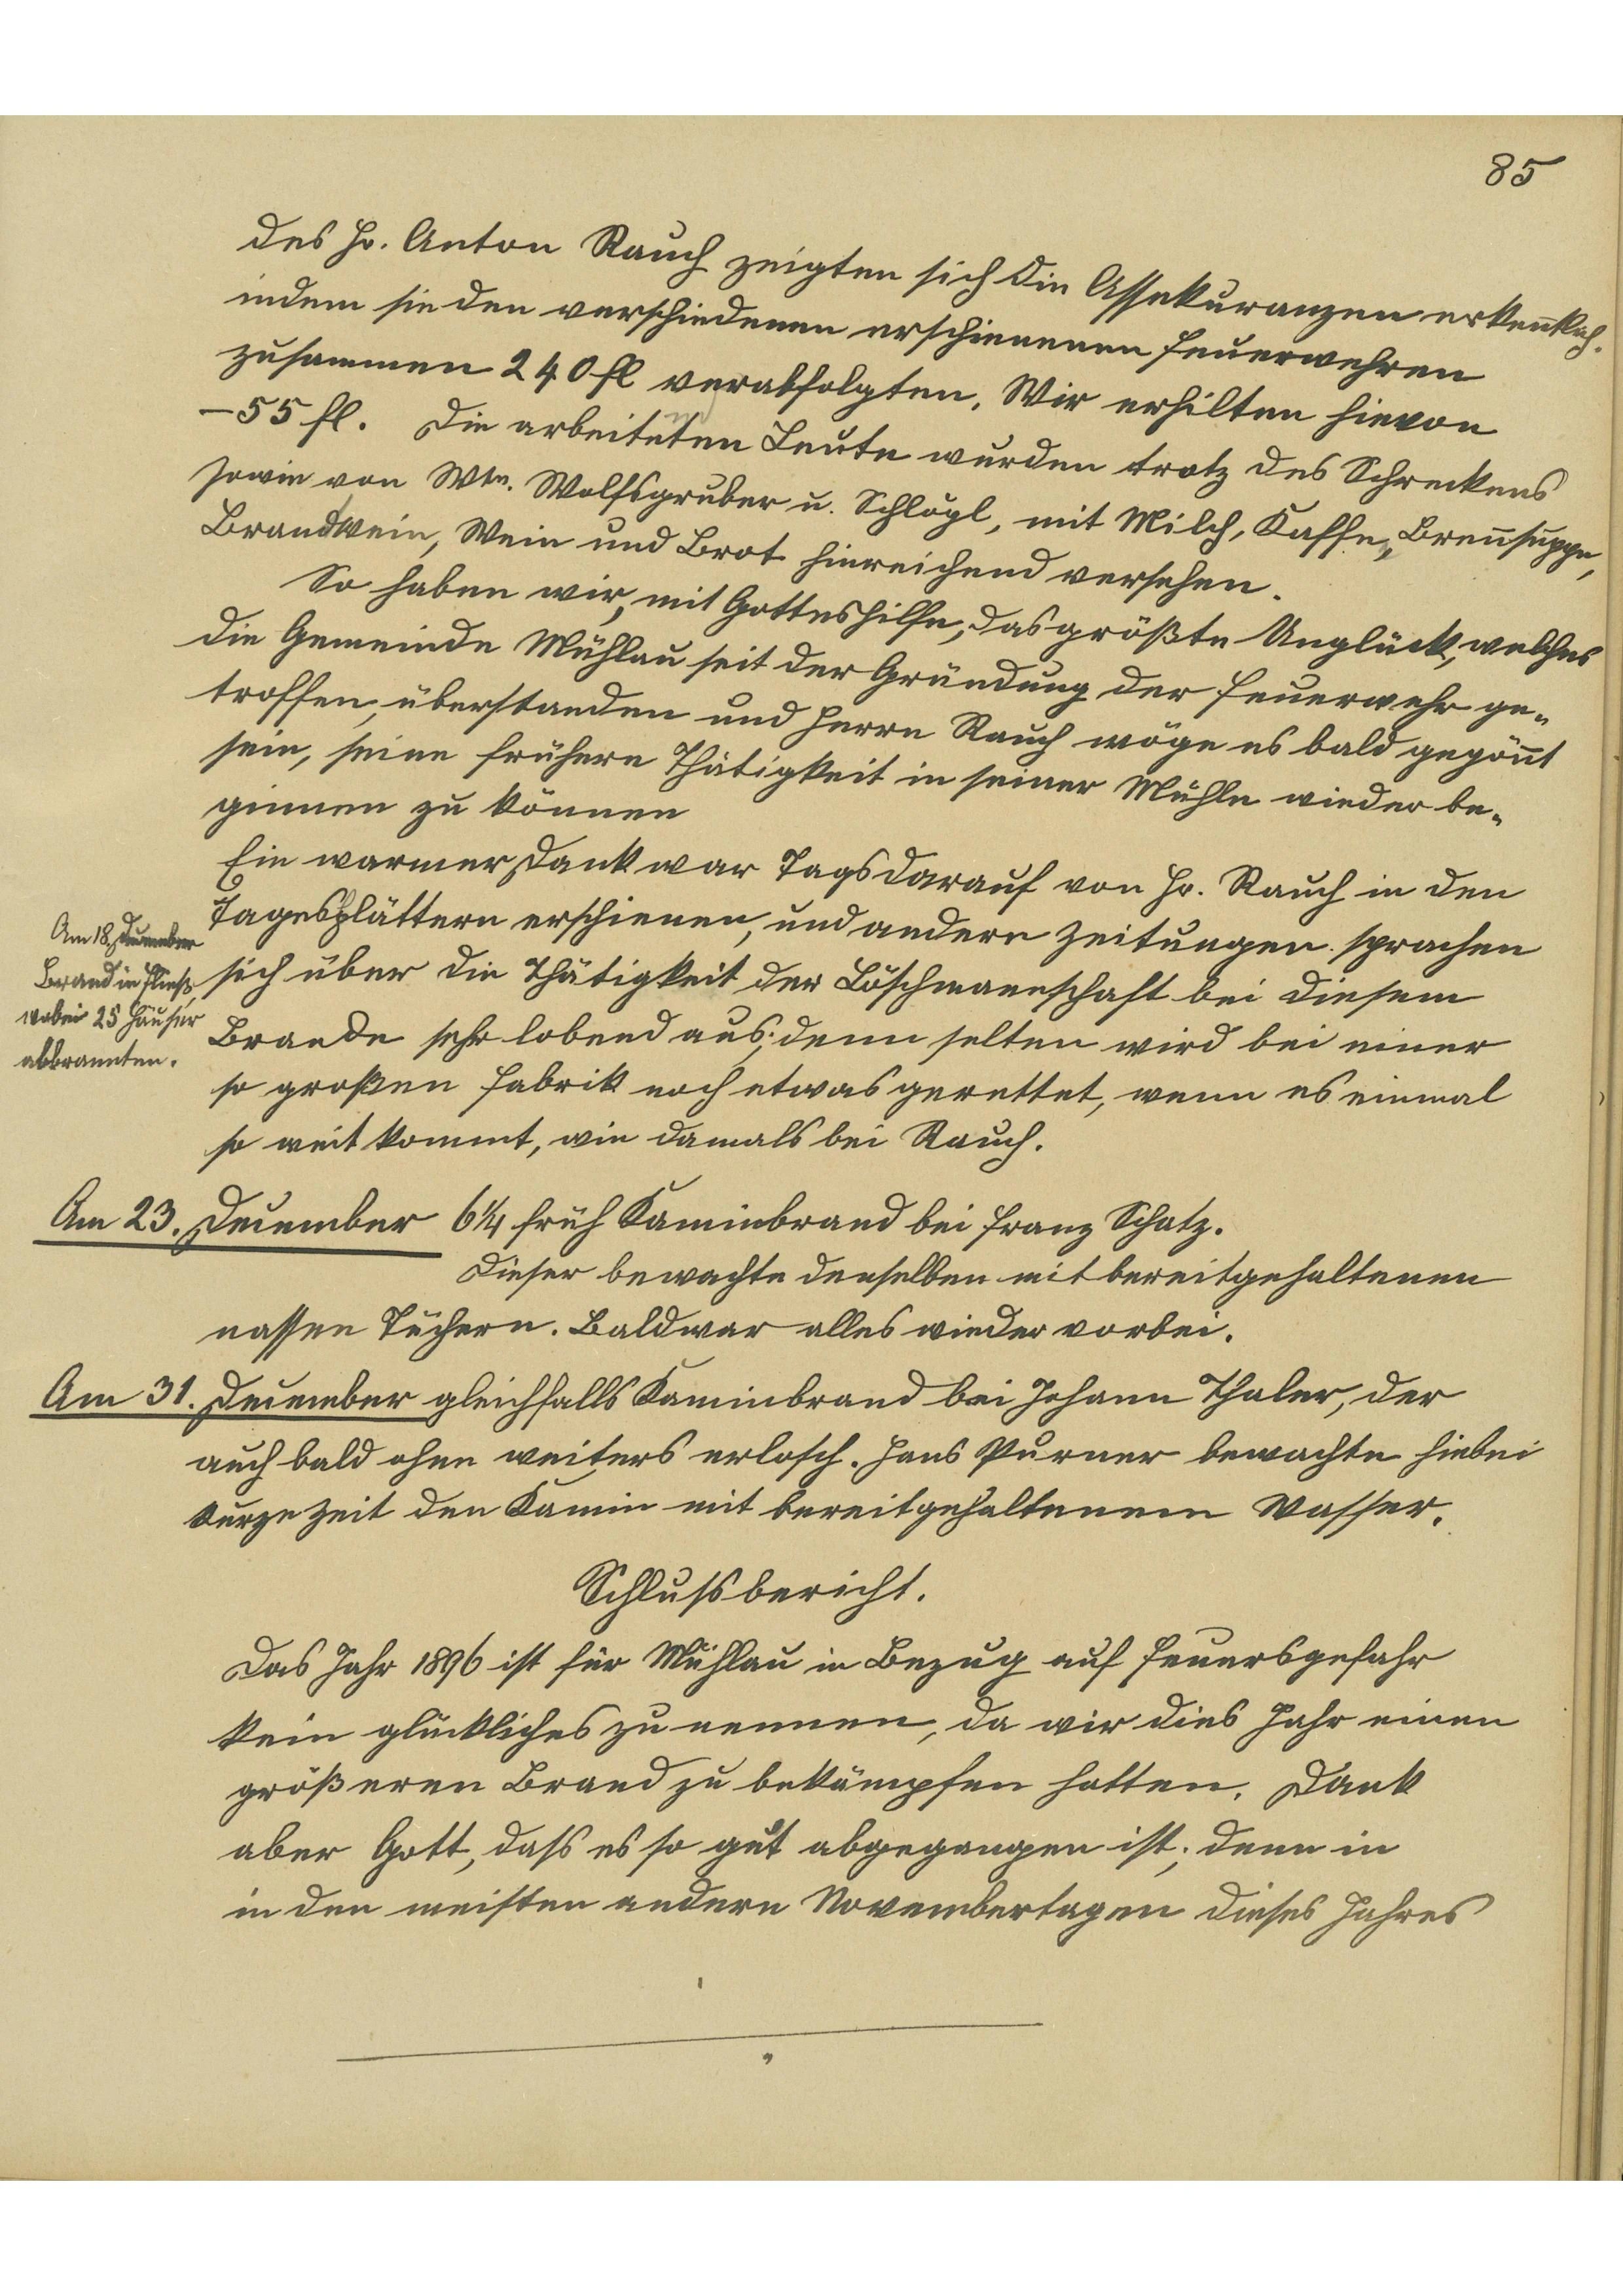 85
des Hr. Anton Rauch zeigten sich die Assekuranzen erkeñtlich.
indem sie den verschiedenen erschienenen Feuerwehren
zusammen 240 fl verabfolgten. Wir erhilten hievon
– 55 fl. Die arbeiteten Leute wurden trotz des Schreckens
sowie von Wtw. Wolfsgruber u. Schlögl, mit Milch, Kaffe, Breñsuppe,
Brandwein, Wein und Brot hinreichend versehen.
So haben wir, mit Gotteshilfe, das größte Unglück, welches
die Gemeinde Mühlau seit der Gründung der Feuerwehr ge-
troffen, überstanden und Herrn Rauch möge es bald gegöñt
sein, seine frühere Thätigkeit in seiner Mühle wieder be-
ginnen zu können
Ein warmer Dank war Tags darauf von Hr. Rauch in den
Tagesblättern erschienen, und andere Zeitungen sprachen
sich über die Thätigkeit der Löschmannschaft bei diesem
Brande sehr lobend aus; denn selten wird bei einer
so großen Fabrik noch etwas gerettet, wenn es einmal
so weit kommt, wie damals bei Rauch.
Am 18. December
Brand in Fließ
wobei 25 Häuser
abbrannten.
Am 23. December 6¼ früh Kaminbrand bei Franz Schatz.
Dieser bewachte denselben mit bereitgehaltenen
nassen Tüchern. Bald war alles wieder vorbei.
Am 31. December gleichfalls Kaminbrand bei Johann Thaler, der
auch bald ohne weiters erlosch. Hans Purner bewachte hiebei
kurze Zeit den Kamin mit bereitgehaltenem Wasser.
Schlussbericht.
Das Jahr 1896 ist für Mühlau in Bezug auf Feuersgefahr
kein glückliches zu nennen, da wir dies Jahr einen
größeren Brand zu bekämpfen hatten. Dank
aber Gott, dass es so gut abgegangen ist; denn in
in den meisten andern Novembertagen dieses Jahres